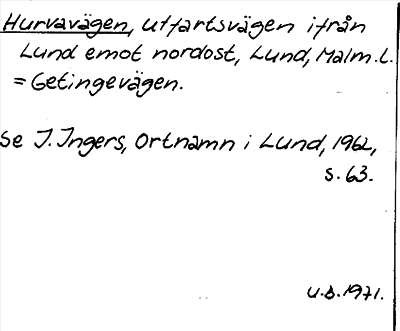 Hurvavägen, utfartsvägen ifrån
Lund emot nordost, Lund, Malm.l.
= Getingevägen.
Se J. Ingers, Ortnamn i Lund, 1962,
s. 63.
U.B. 1971.